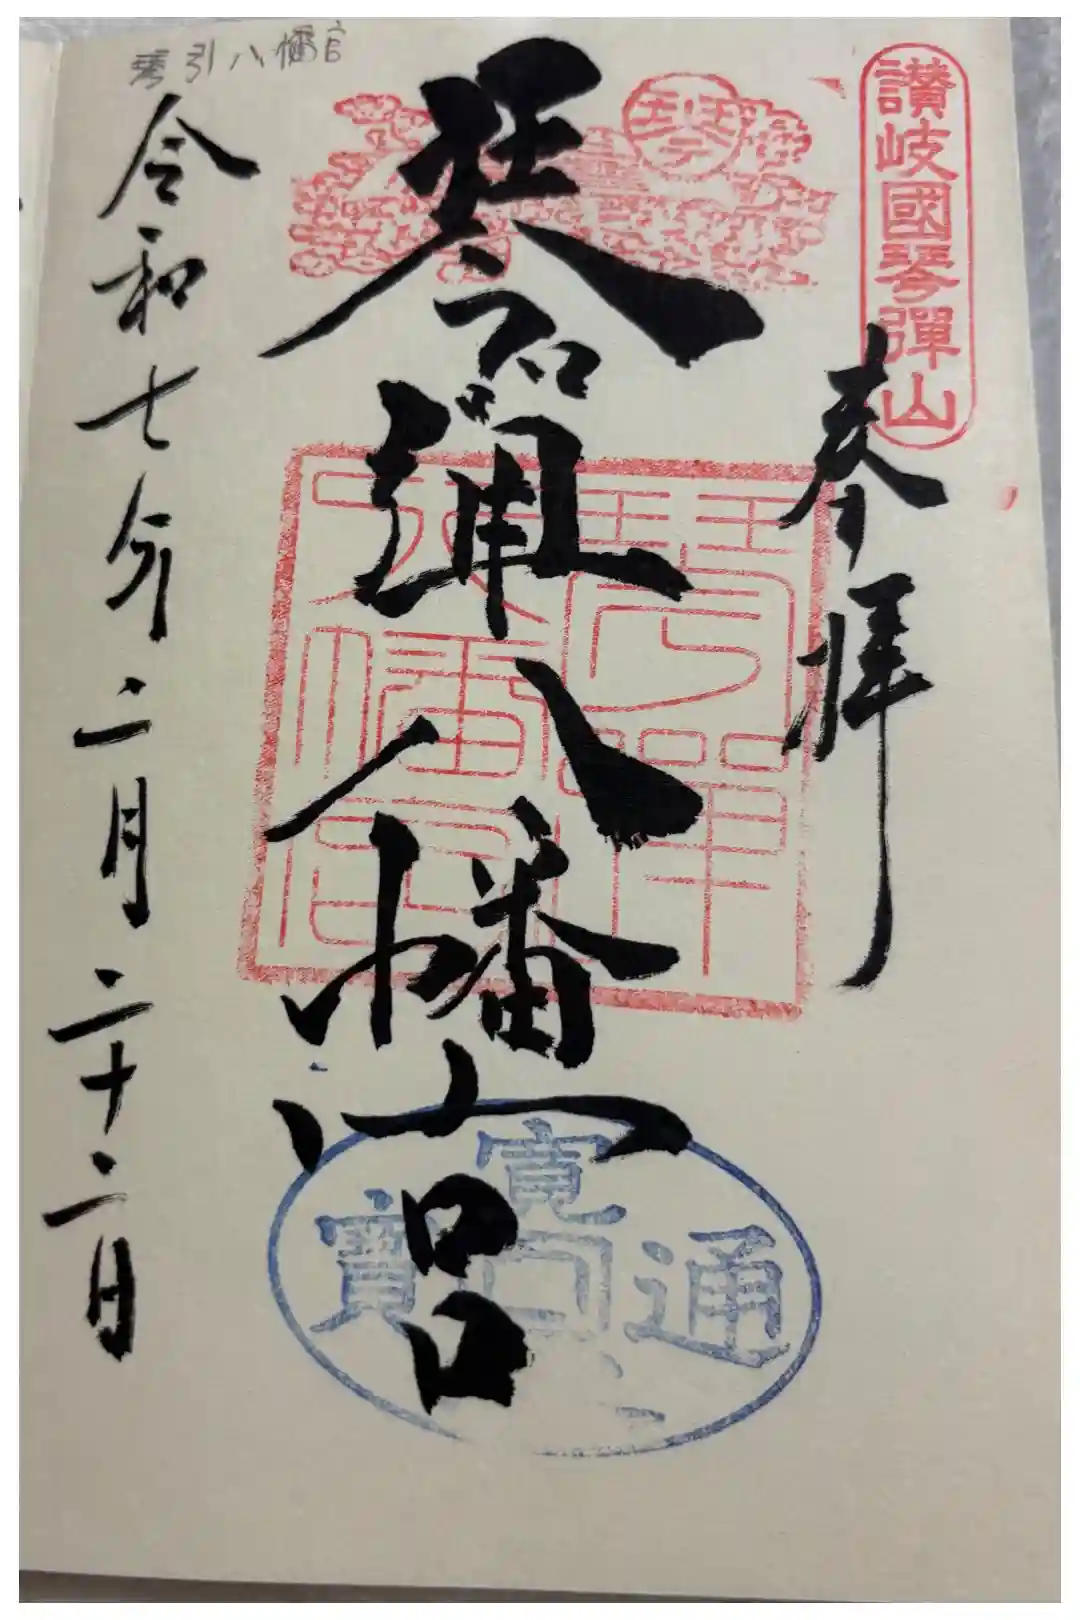 讚岐國琴彈山
奉拝
琴
琴弾八幡宮
琴彈八幡宮
寛永通寶
琴引八幡官
令和七年二月二十二日